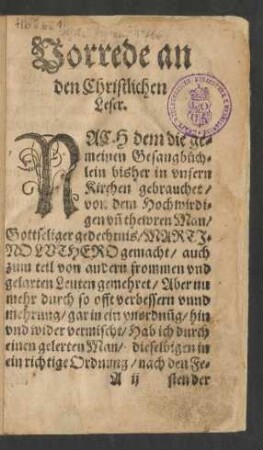 Vorrede an
den Christlichen
Leser.
NACH dem die ge-
meinen Gesangbüch-
lein bisher in vnsern
Kirchen gebrauchet/
von dem Hochwirdi-
gen vñ thewren Man/
Gottseliger gedechtnis/ MARTI-
NO LVTHERO gemacht/ auch
zum teil von andern frommen vnd
gelarten Leuten gemehret/ Aber nu
mehr durch so offt verbessern vnnd
mehrung/ gar in ein vnordnũg/ hin
vnd wider vermischt/ Hab ich durch
einen gelerten Man/ dieselbigen in
ein richtige Ordnung/ nach den Fe-
A ij sten der